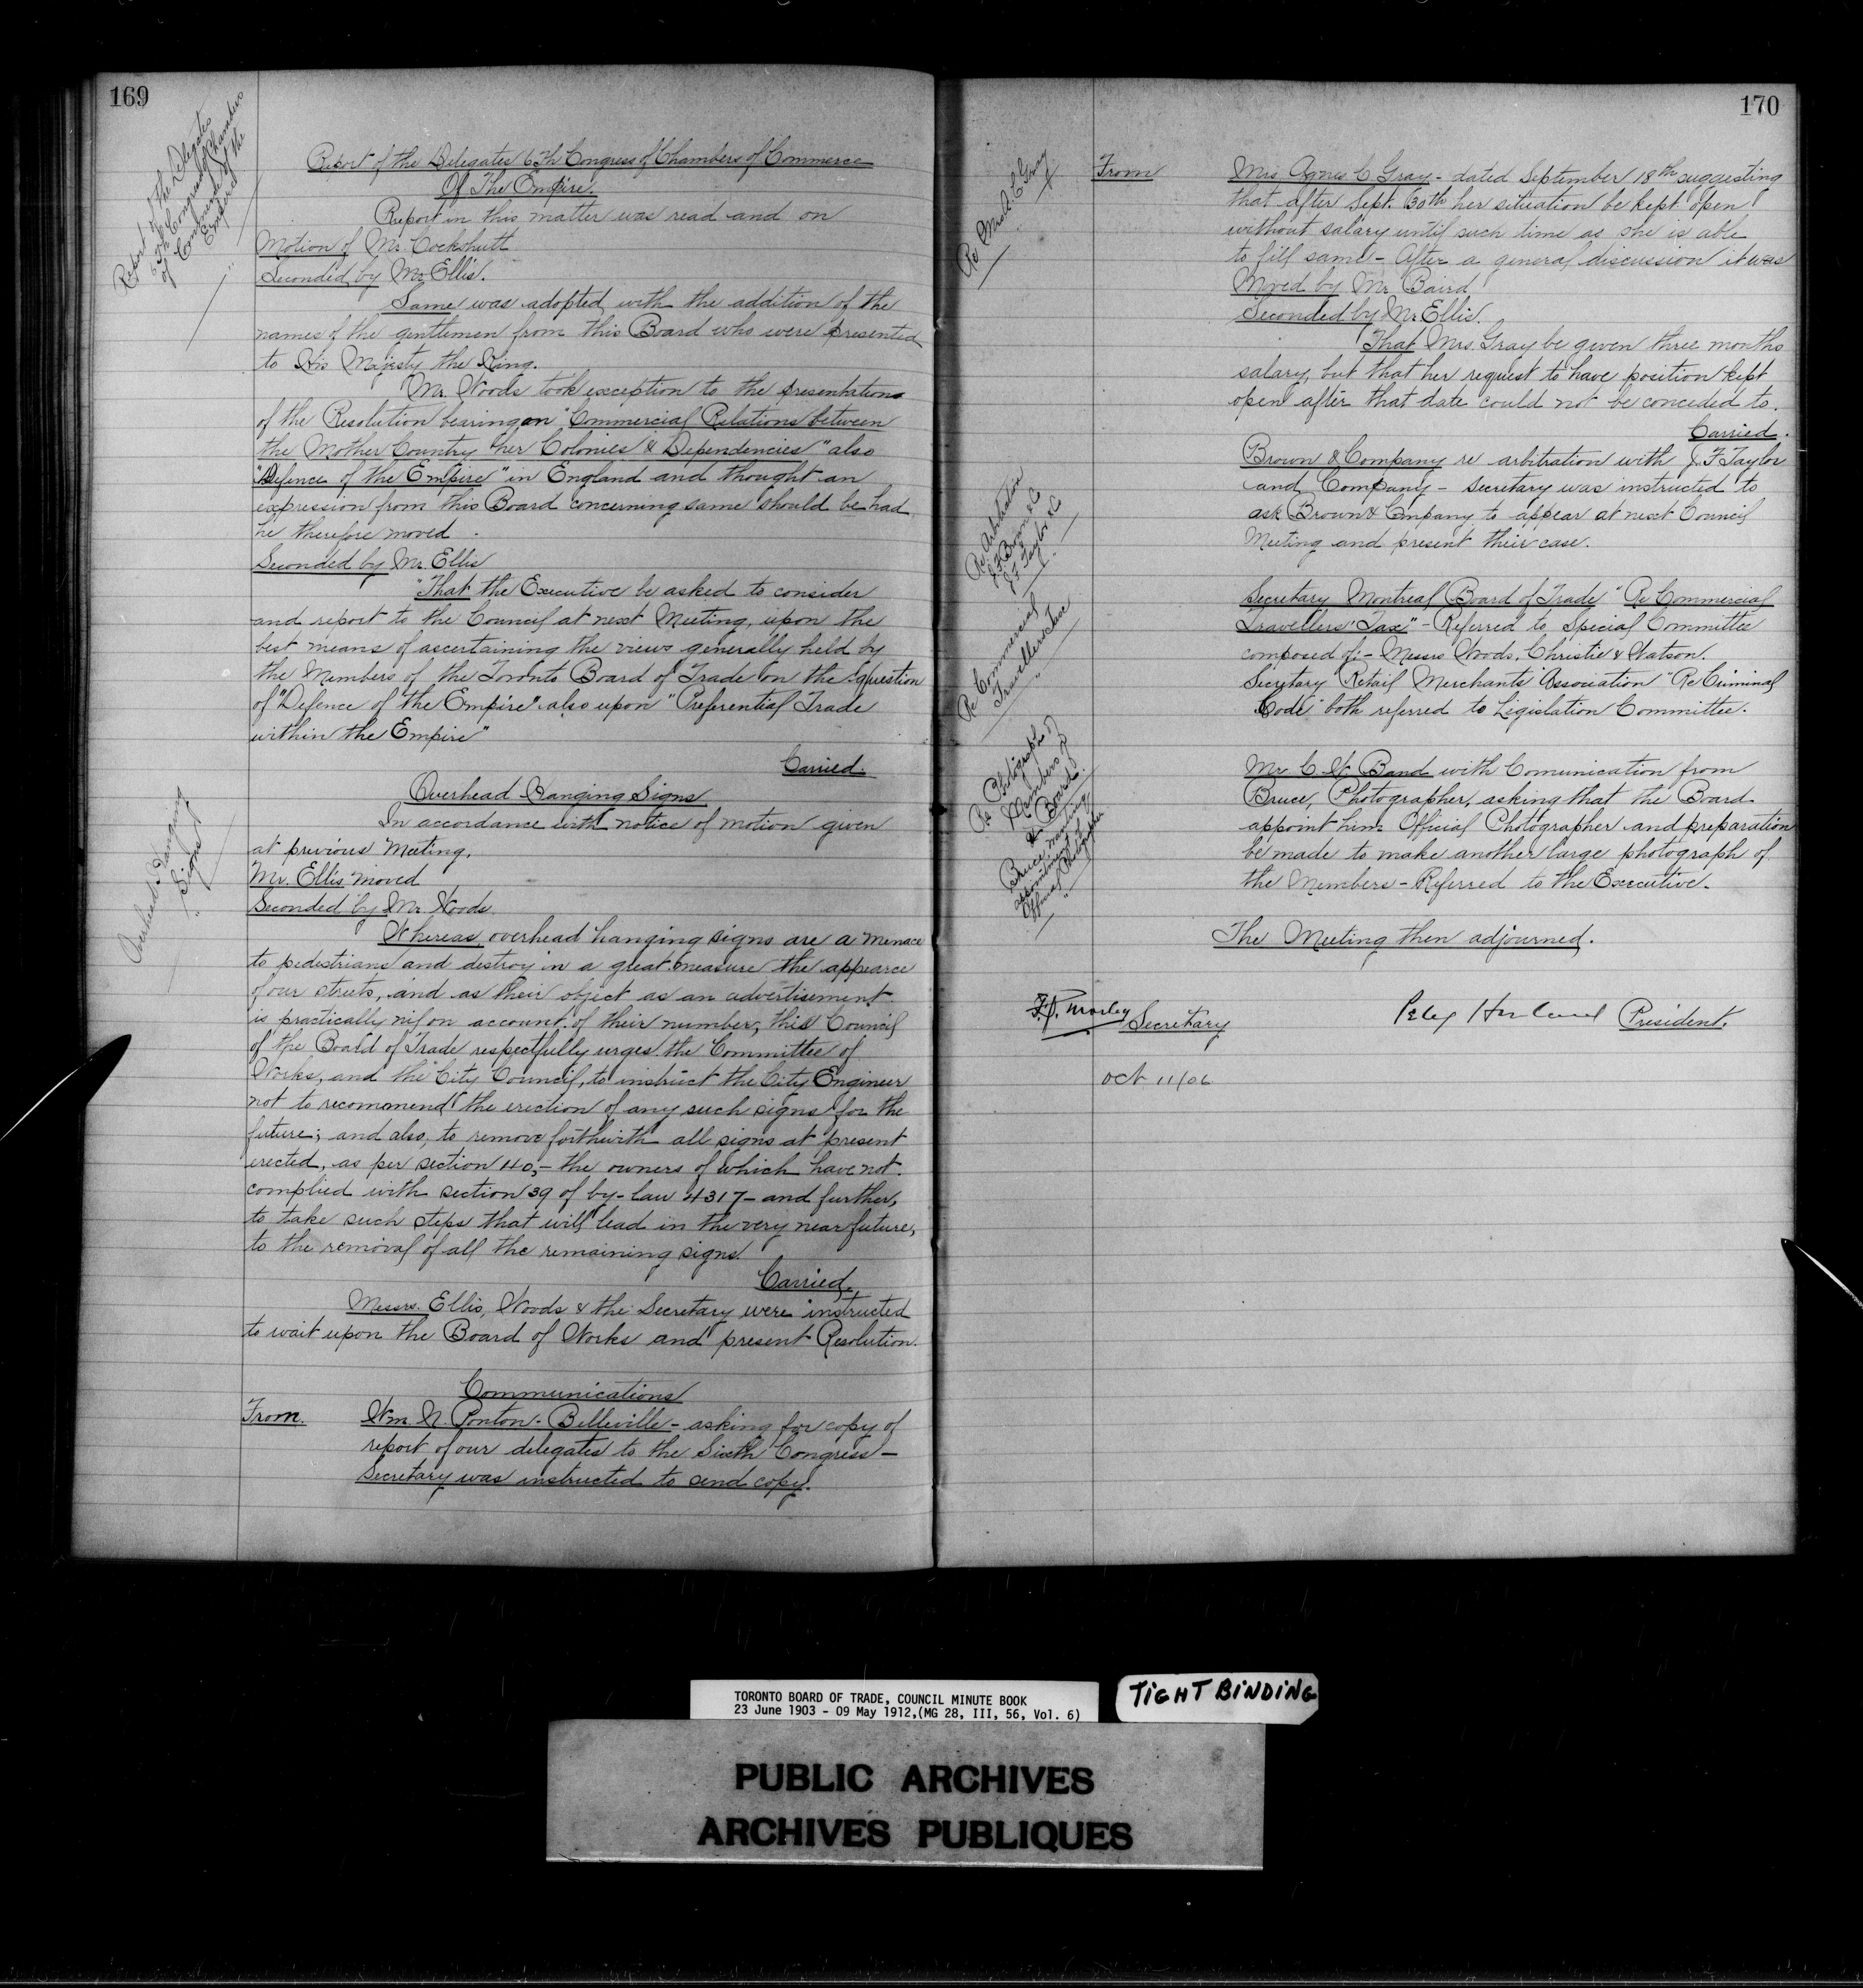 169
Report of the Delegates
6th Congress of Chambers
of Commerce of the
Empire
Report of the Delegates 6th Congress of Chambers of Commerce
Of The Empire.
Report in this matter was read and on
Motion of Mr. Cockshutt
Seconded by Mr Ellis.
Same was adopted with the addition of the
names of the gentlemen from this Board who were presented
to His Majesty the King.
Mr. Woods took exception to the presentation
of the Resolution bearing on "Commercial Relations between
the Mother Country her Colonies & Dependencies" also
"Defence of the Empire" in England and thought an
expression from this Board concerning same should be had
he therefore moved.
Seconded by Mr. Ellis
"That the Executive be asked to consider
and report to the Council at next Meeting, upon the
best means of ascertaining the views generally held by
the Members of the Toronto Board of Trade on the question
of "Defence of the Empire" also upon "Preferential Trade
within the Empire"
Carried.
Overhead Hanging
Signs
Overhead Hanging Signs
In accordance with notice of motion given
at previous Meeting.
Mr. Ellis moved
Seconded by Mr Woods.
Whereas overhead hanging signs are a menace
to pedestrians and destroy in a great measure the appearce
of our streets, and as their object as an advertisement
is practically nil on account of their number, this Council
of the Board of Trade respectfully urges the Committee of
Works, and the City Council, to instruct the City Engineer
not to recommend the erection of any such signs for the
future; and also, to remove forthwith all signs at present
erected, as per section 40,- the owners of which have not
complied with section 39 of by-law 4317- and further,
to take such steps that will lead in the very near future,
to the removal of all the remaining signs.
Carried.
Messrs. Ellis, Woods & the Secretary were instructed
to wait upon the Board of Works and present Resolution.
Communications
From. Wm. N. Ponton - Belleville - asking for copy of
report of our delegates to the Sixth Congress -
Secretary was instructed to send copy.
170
Re Mrs A. C Gray
From Mrs Agnes C Gray - dated September 18th suggesting
that after Sept. 30th her situation be kept open
without salary until such time as she is able
to fill same - After a general discussion it was
Moved by Mr Baird
Seconded by Mr Ellis.
That Mrs. Gray be given three months
salary, but that her request to have position kept
open after that date could not be conceded to.
Carried.
Re Arbitration
Brown & Co
J F Taylor & Co
Brown & Company re arbitration with J F Taylor
and Company - Secretary was instructed to
ask Brown & Cmpany to appear at next Council
Meeting and present their case.
Re Commercial
Travellers Tax
Secretary Montreal Board of Trade "Re Commercial
Travellers' Tax" - Referred to Special Committee
composed of:- Messrs Woods, Christie & Watson.
Secretary Retail Merchants Association "Re Criminal
Code" both referred to Legislation Committee.
Re Photographs of
Members of
Board.
Bruce wanting
appointment of
Official Photographer
Mr. C. W. Band with Comunication from
Bruce, Photographer, asking that the Board
appoint him Official Photographer and preparation
be made to make another large photograph of
the Members - Referred to the Executive.
The Meeting then adjourned.
F.G. Morley Secretary
Peleg Howland President.
Oct 11/06
TORONTO BOARD OF TRADE, COUNCIL MINUTE BOOK
23 June 1903 - 09 May 1912,(MG 28, III, 56, Vol. 6)
TIGHT BINDING
PUBLIC ARCHIVES
ARCHIVES PUBLIQUES